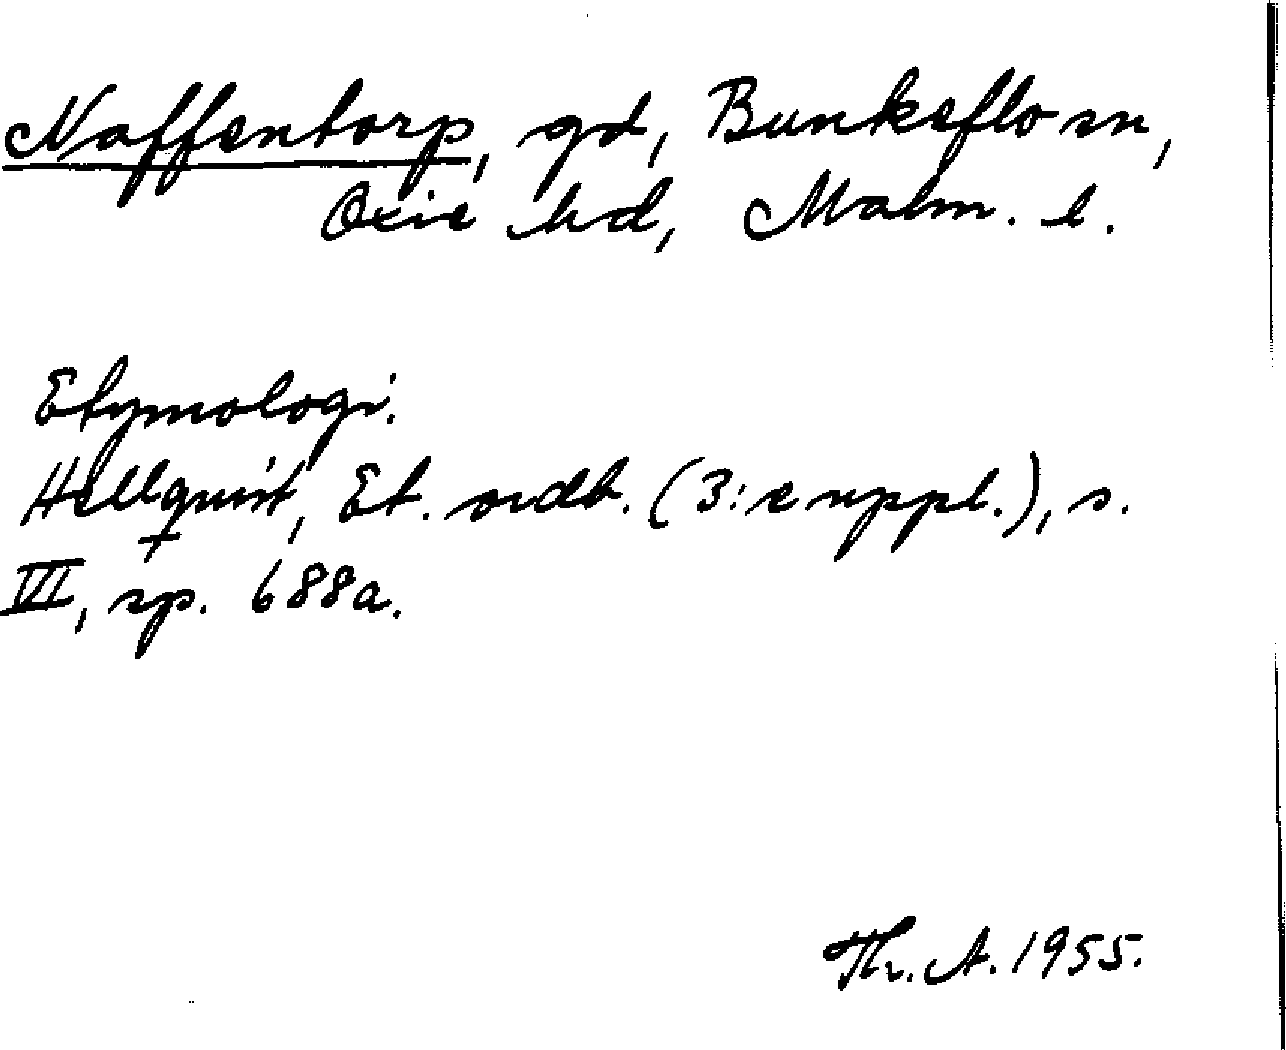 Naffentorp, gd, Bunkeflo sn,
Oxie hd, Malm. l.
Etymologi.
Hellquist, Et. ordb. (3:e uppl.), s.
VI, sp. 688a.
Th. A. 1955.